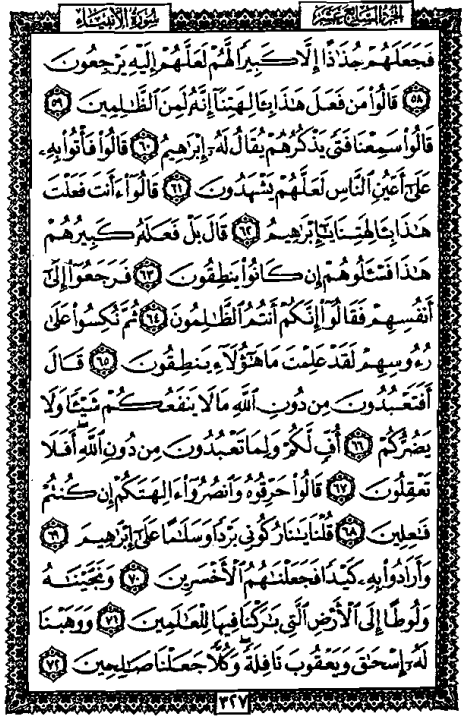 سورة الأنبياء
الجزء السابع عشر
فَجَعَلَهُمْ جُذَٰذًا إِلَّا كَبِيرًا لَّهُمْ لَعَلَّهُمْ إِلَيْهِ يَرْجِعُونَ
٥٨ قَالُوا۟ مَن فَعَلَ هَٰذَا بِـَٔالِهَتِنَآ إِنَّهُۥ لَمِنَ ٱلظَّٰلِمِينَ ٥٩
قَالُوا۟ سَمِعْنَا فَتًى يَذْكُرُهُمْ يُقَالُ لَهُۥٓ إِبْرَٰهِيمُ ٦٠ قَالُوا۟ فَأْتُوا۟ بِهِۦ
عَلَىٰٓ أَعْيُنِ ٱلنَّاسِ لَعَلَّهُمْ يَشْهَدُونَ ٦١ قَالُوٓا۟ ءَأَنتَ فَعَلْتَ
هَٰذَا بِـَٔالِهَتِنَا يَٰٓإِبْرَٰهِيمُ ٦٢ قَالَ بَلْ فَعَلَهُۥ كَبِيرُهُمْ
هَٰذَا فَسْـَٔلُوهُمْ إِن كَانُوا۟ يَنطِقُونَ ٦٣ فَرَجَعُوٓا۟ إِلَىٰٓ
أَنفُسِهِمْ فَقَالُوٓا۟ إِنَّكُمْ أَنتُمُ ٱلظَّٰلِمُونَ ٦٤ ثُمَّ نُكِسُوا۟ عَلَىٰ
رُءُوسِهِمْ لَقَدْ عَلِمْتَ مَا هَٰٓؤُلَآءِ يَنطِقُونَ ٦٥ قَالَ
أَفَتَعْبُدُونَ مِن دُونِ ٱللَّهِ مَا لَا يَنفَعُكُمْ شَيْـًٔا وَلَا
يَضُرُّكُمْ ٦٦ أُفٍّ لَّكُمْ وَلِمَا تَعْبُدُونَ مِن دُونِ ٱللَّهِ ۖ أَفَلَا
تَعْقِلُونَ ٦٧ قَالُوا۟ حَرِّقُوهُ وَٱنصُرُوٓا۟ ءَالِهَتَكُمْ إِن كُنتُمْ
فَٰعِلِينَ ٦٨ قُلْنَا يَٰنَارُ كُونِى بَرْدًا وَسَلَٰمًا عَلَىٰٓ إِبْرَٰهِيمَ ٦٩
وَأَرَادُوا۟ بِهِۦ كَيْدًا فَجَعَلْنَٰهُمُ ٱلْأَخْسَرِينَ ٧٠ وَنَجَّيْنَٰهُ
وَلُوطًا إِلَى ٱلْأَرْضِ ٱلَّتِى بَٰرَكْنَا فِيهَا لِلْعَٰلَمِينَ ٧١ وَوَهَبْنَا
لَهُۥٓ إِسْحَٰقَ وَيَعْقُوبَ نَافِلَةً ۖ وَكُلًّا جَعَلْنَا صَٰلِحِينَ ٧٢
٣٢٧